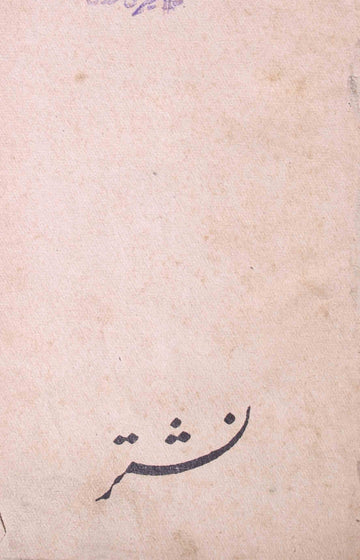 نشتر